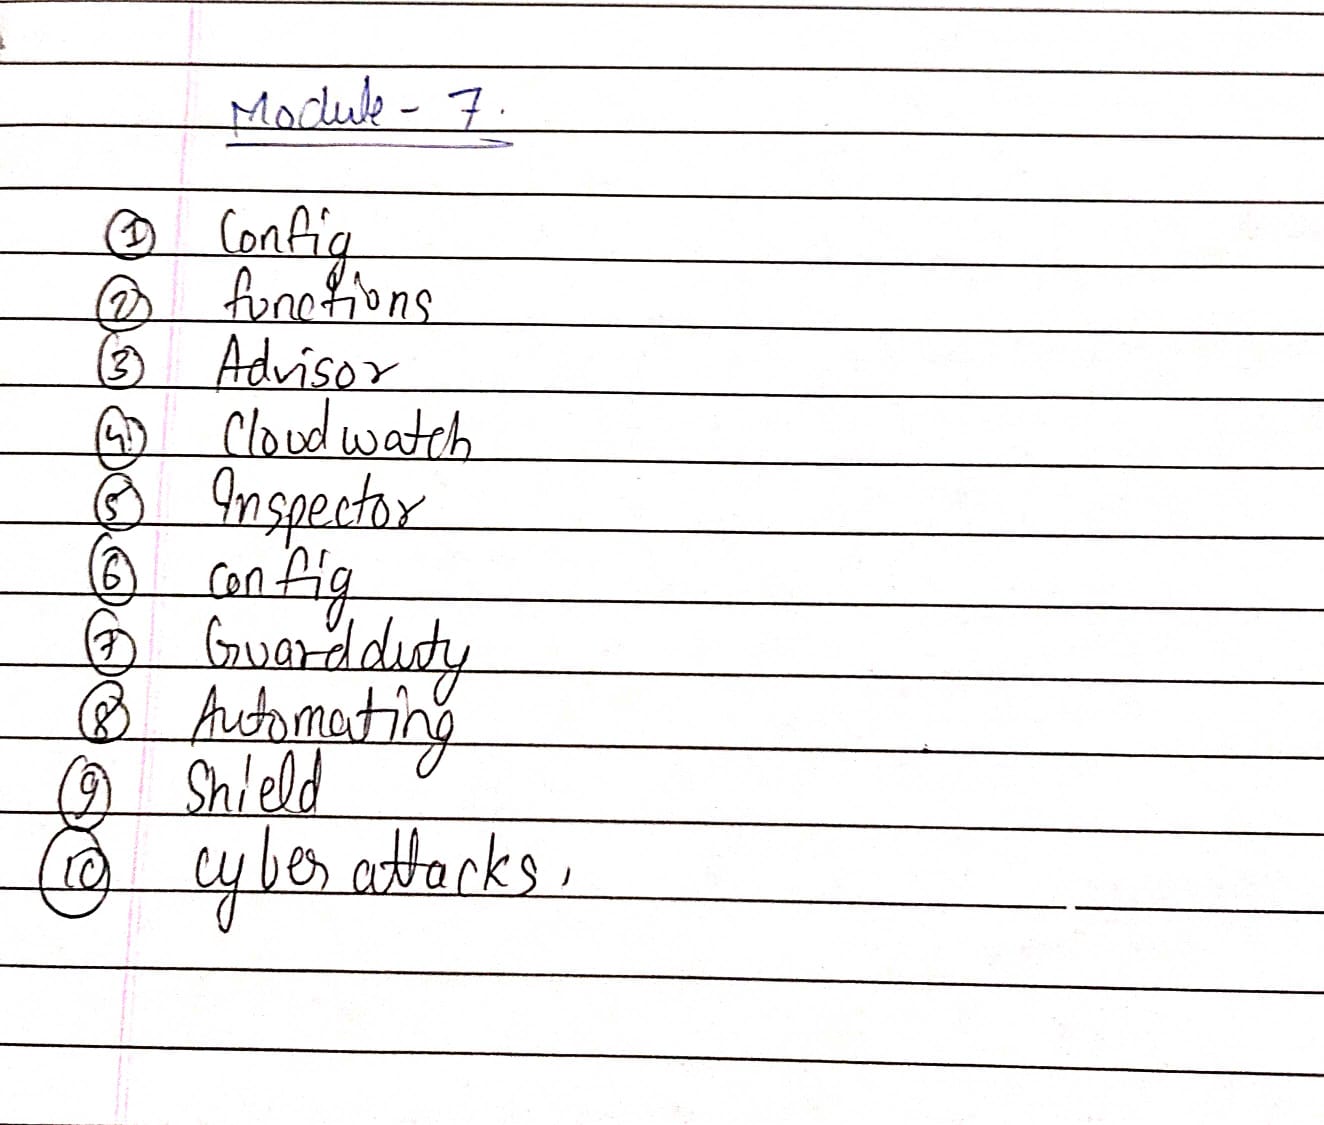 Module - 7.
① Config
② functions
③ Advisor
④ Cloudwatch
⑤ Inspector
⑥ config
⑦ Guardduty
⑧ Automating
⑨ Shield
⑩ cyber attacks,